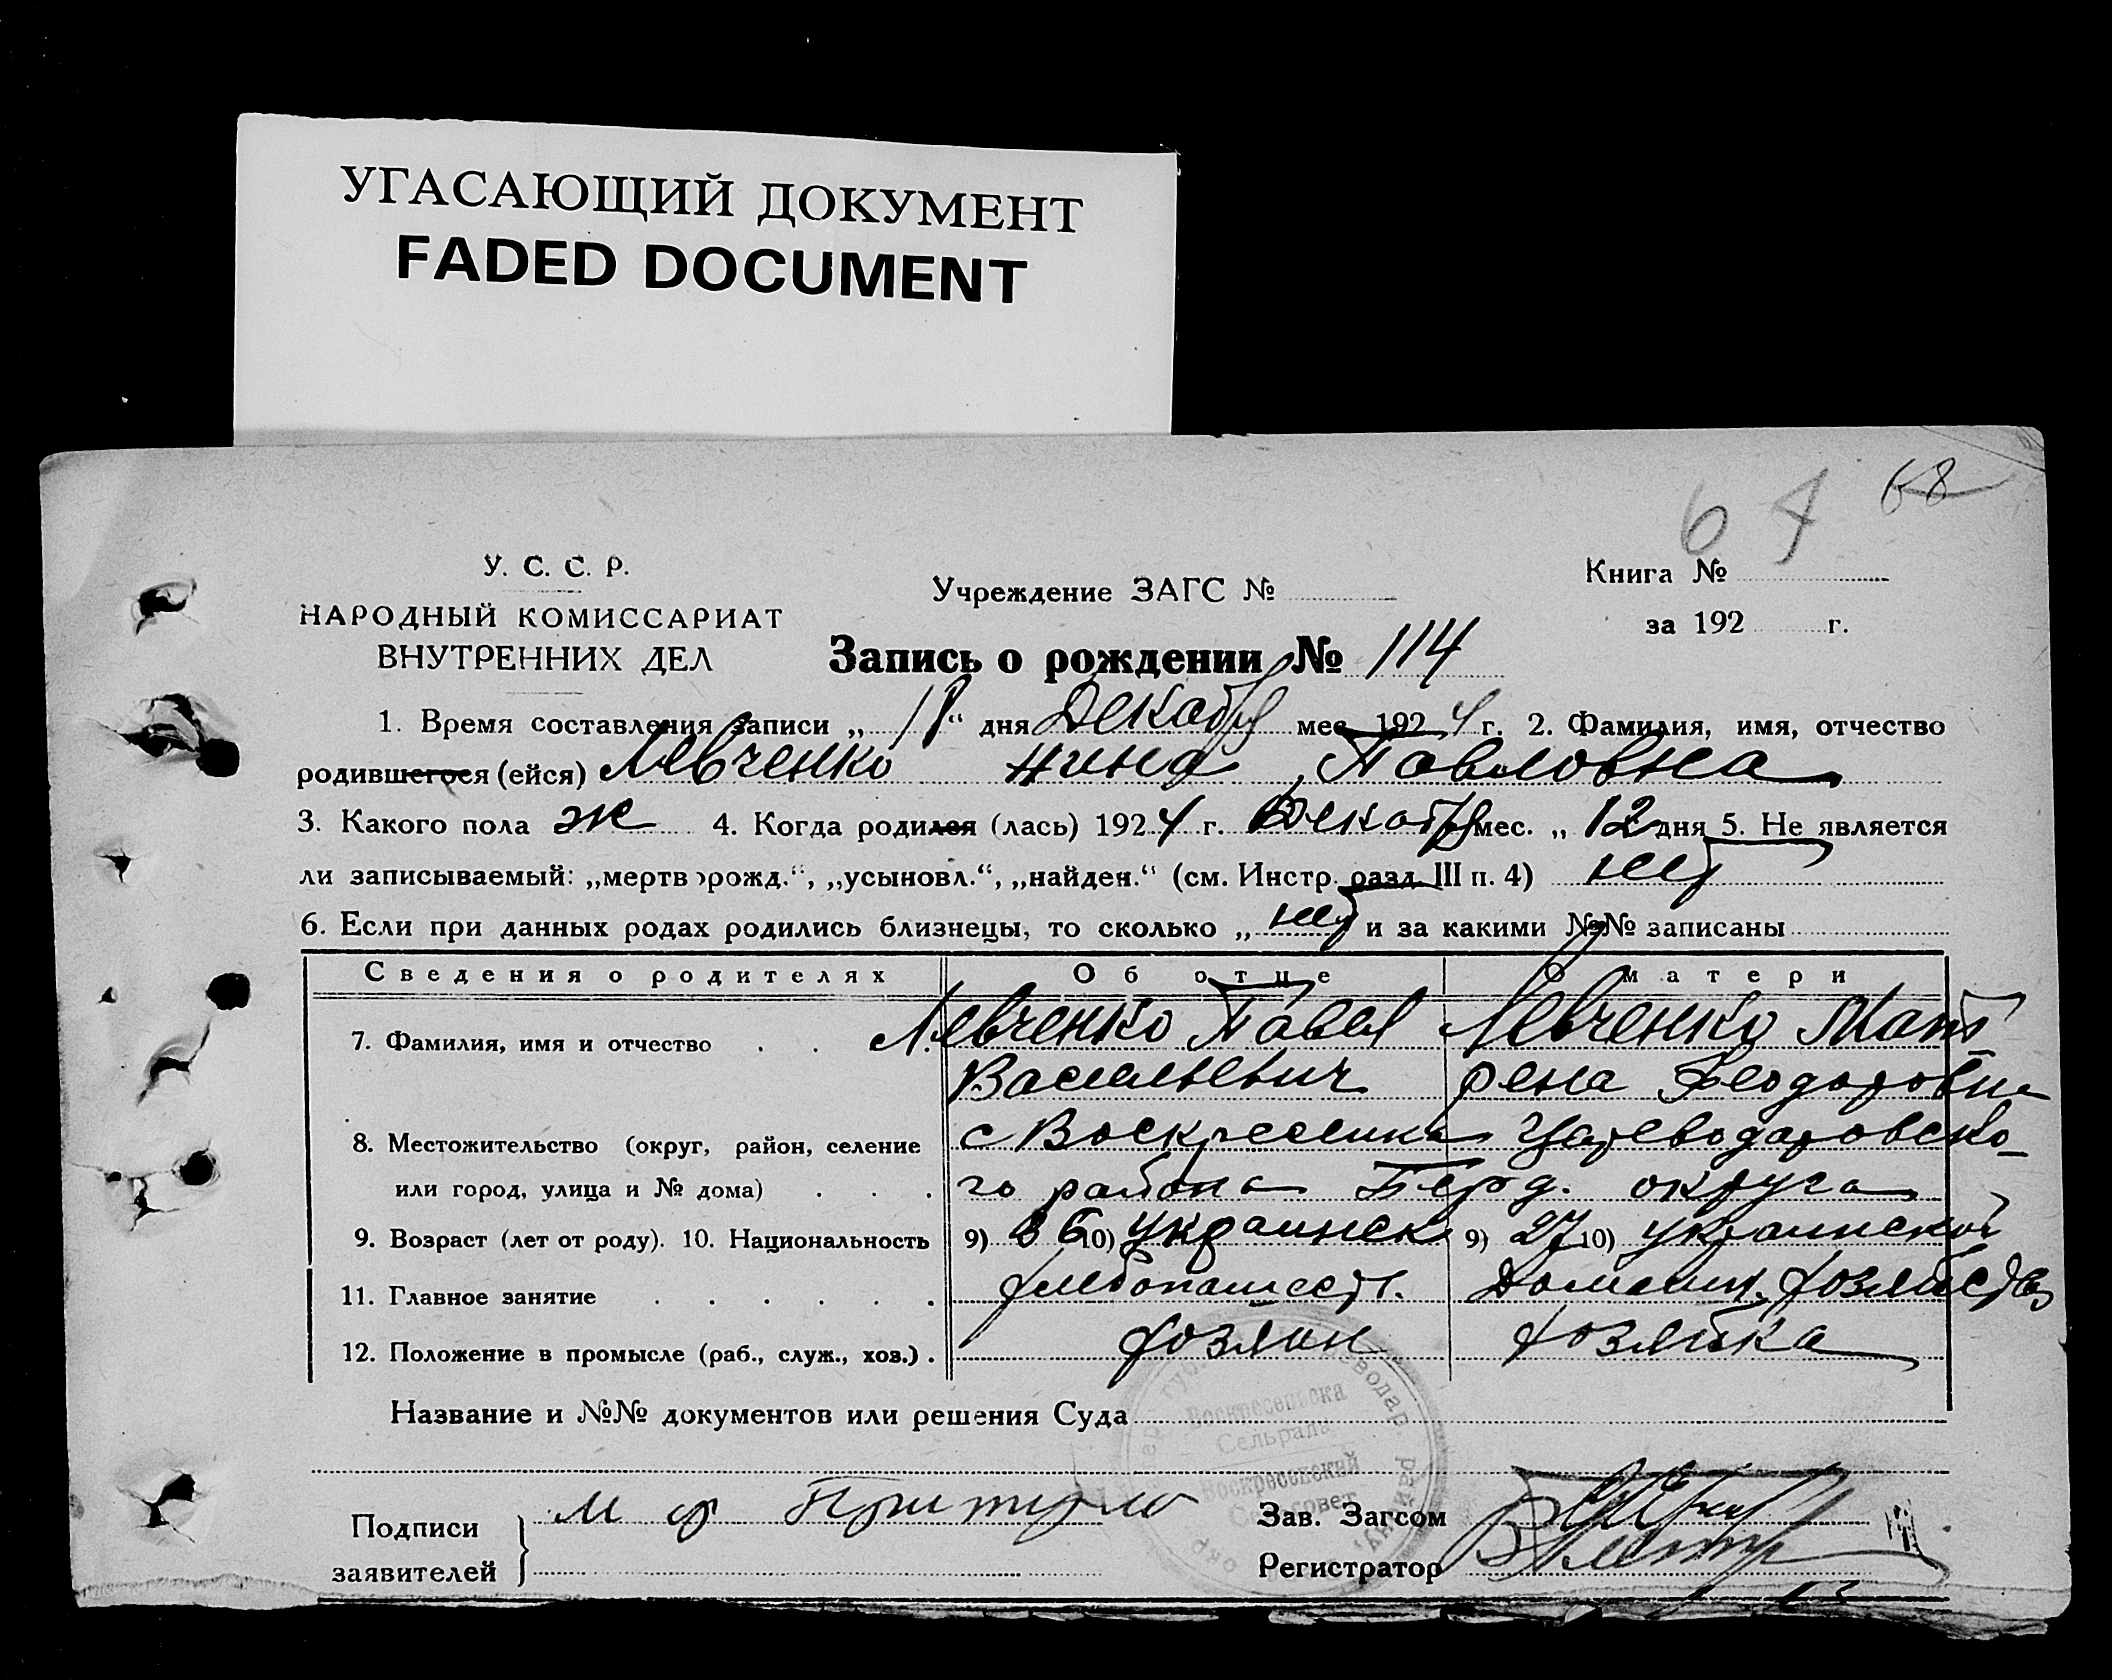 УГАСАЮЩИЙ ДОКУМЕНТ
FADED DOCUMENT
64 68
У. С. С. Р.
НАРОДНЫЙ КОМИССАРИАТ
ВНУТРЕННИХ ДЕЛ
Учреждение ЗАГС №
Книга №
за 192 г.
Запись о рождении № 114
1. Время составления записи „18“ дня Декабря мес. 1924 г. 2. Фамилия, имя, отчество
родившегося (ейся) Левченко Нина Павловна
3. Какого пола ж 4. Когда родился (лась) 1924 г. Декабря мес. „12 дня 5. Не является
ли записываемый: „мертворожд.“, „усыновл.“, „найден.“ (см. Инстр. разд. III п. 4) нет
6. Если при данных родах родились близнецы, то сколько „нет и за какими №№ записаны
Сведения о родителях Об отце О матери
7. Фамилия, имя и отчество . . Левченко Павел Левченко Мат
Васильевич рена Феодоровна
8. Местожительство (округ, район, селение с Воскресенка Цареводаровско-
или город, улица и № дома) . . . го района Берд. округа
9. Возраст (лет от роду). 10. Национальность 9) 36 10) украинск 9) 27 10) украинской
11. Главное занятие . . . . . . хлебопашест. Домашн. хозяйство
12. Положение в промысле (раб., служ., хоз.) . хозяин хозяйка
Название и №№ документов или решения Суда
Воскресенська
Сельрада
Воскресенский
Сельсовет
Подписи
заявителей
М Ф Притуло
Зав. Загсом
Регистратор